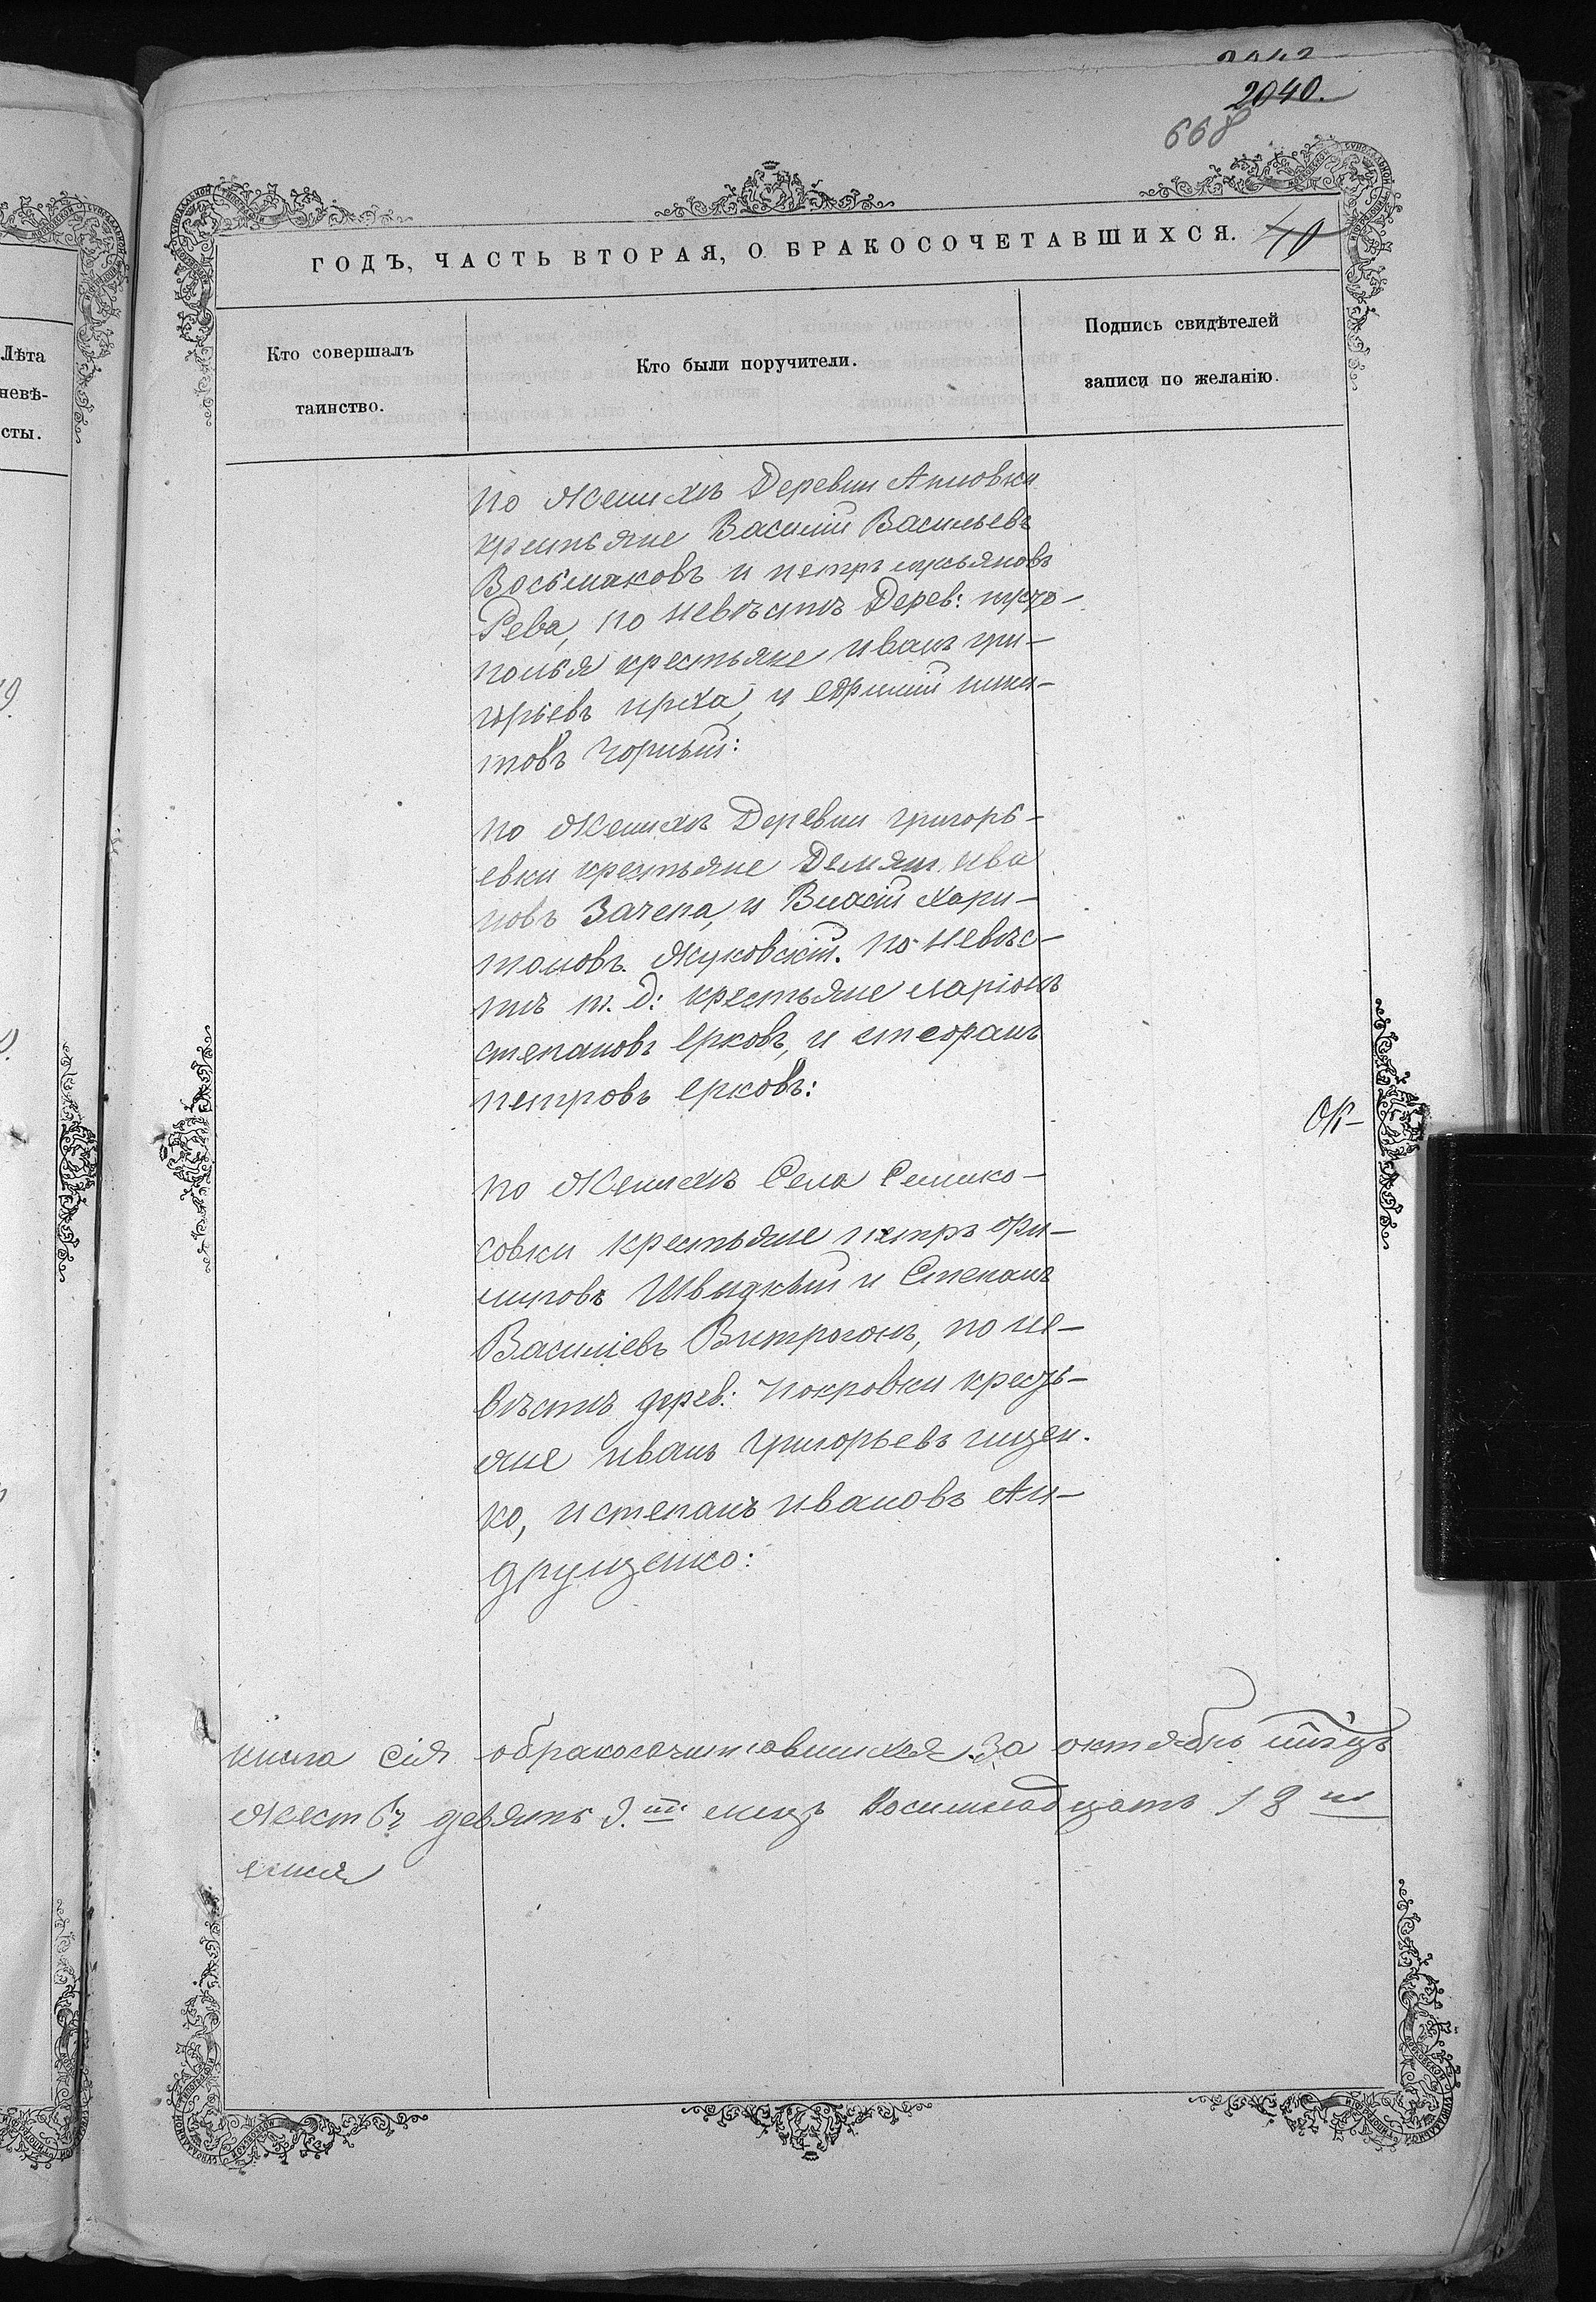 2040.
668
ГОДЪ, ЧАСТЬ ВТОРАЯ, О БРАКОСОЧЕТАВШИХСЯ. 40
Лѣта
невѣ-
сты.
Кто совершалъ
таинство.
Кто были поручители.
Подпись свидѣтелей
записи по желанію.
по Женихѣ Деревни Анновки
крестьяне Василий Васильевъ
Восьмаковъ и петръ лукьяновъ
Рева, по невѣстѣ Дерев: пусто-
полья крестьяне иванъ гри-
горьевъ ирха, и ефимий ники-
товъ Чорный:
по Женихѣ Деревни григорь-
евки крестьяне Демянъ ива
новъ Зачепа, и Власій Хари-
тоновъ Жуковскій. по невѣс-
тѣ т. д: крестьяне ларіонъ
степановъ ерковъ, и стефанъ
петровъ ерковъ:
по Женихѣ Села Селико-
совки крестьяне петръ фи-
липовъ Швыдкый и Степанъ
Василіевъ Витрогонъ, по не-
вѣстѣ дерев: покровки кресть-
яне иванъ Григорьевъ гицен-
ко, и степанъ ивановъ Ан-
друщенко:
книга сія обракосочитавшихся За октябрь мѣцъ
девять 9. лицъ Восимнадцать 18